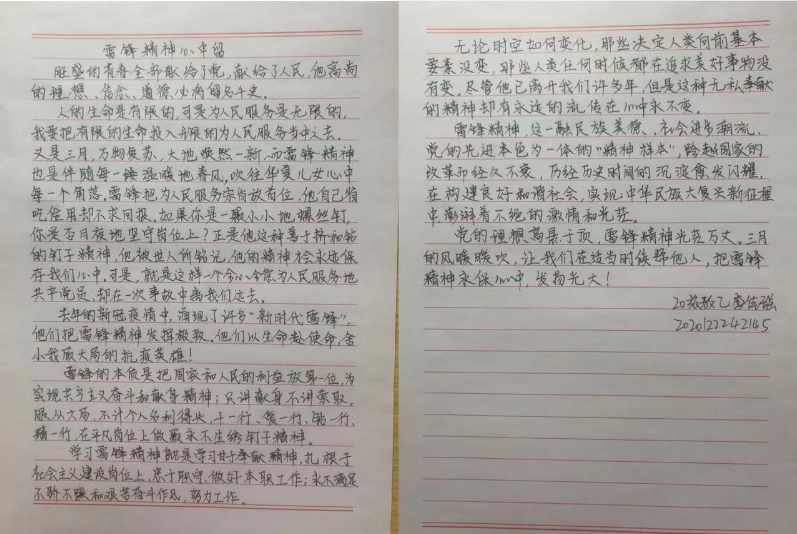 雷锋精神心中留
旺盛的青春全部献给了党,献给了人民,他高尚
的理想、信念、道德必流留名千史。
人的生命是有限的,可是为人民服务是无限的,
我要把有限的生命投入无限的为人民服务当中之去。
又是三月,万物复苏、大地焕然一新,而雷锋精神
也是伴随每一缕温暖地春风,吹往华夏儿女心中
每一个角落。雷锋把为人民服务宗旨放首位,他自己省
吃俭用却不求回报,如果你是一颗小小地螺丝钉,
你是否日夜地坚守岗位上?正是他这种善于挤和钻
的钉子精神,他被世人所铭记,他的精神才会永远保
存我们心中,可是,就是这样一个全心全意为人民服务地
共产党员,却在一次事故中离我们远去。
去年的新冠疫情中,涌现了许多“新时代雷锋”,
他们把雷锋精神发挥极致,他们以生命赴使命,舍
小我顾大局的抗疫英雄!
雷锋的本质是把国家和人民的利益放第一位,为
实现共产主义奋斗和献身精神;只讲献身不讲索取。
服从大局,不计个人名利得失,干一行、爱一行、钻一行、
精一行,在平凡岗位上做颗永不生锈钉子精神。
学习雷锋精神就是学习甘于奉献精神,扎根于
社会主义建设岗位上,尽于职守,做好本职工作;永不满足
不骄不躁和艰苦奋斗作风,努力工作。
无论时空如何变化,那些决定人类向前基本
要素没变,那些人类任何时候都在追求美好事物没
有变。尽管他已离开我们许多年,但是这种无私奉献
的精神却有永远的流传在心中永不变。
雷锋精神,这一融民族美德、社会进步潮流、
党的先进本色为一体的“精神旗本”,跨越国家的
改革而经久不衰,历经历史时间的沉淀愈发闪耀,
在构建良好和谐社会,实现中华民族大复兴新征程
中,澎湃着不绝的激情和光芒。
党的理想高悬于顶,雷锋精神光芒万丈。三月
的风暖暖吹,让我们在适当时候帮他人,把雷锋
精神永保心中,发扬光大!
20旅数乙李佳强
2020122242145